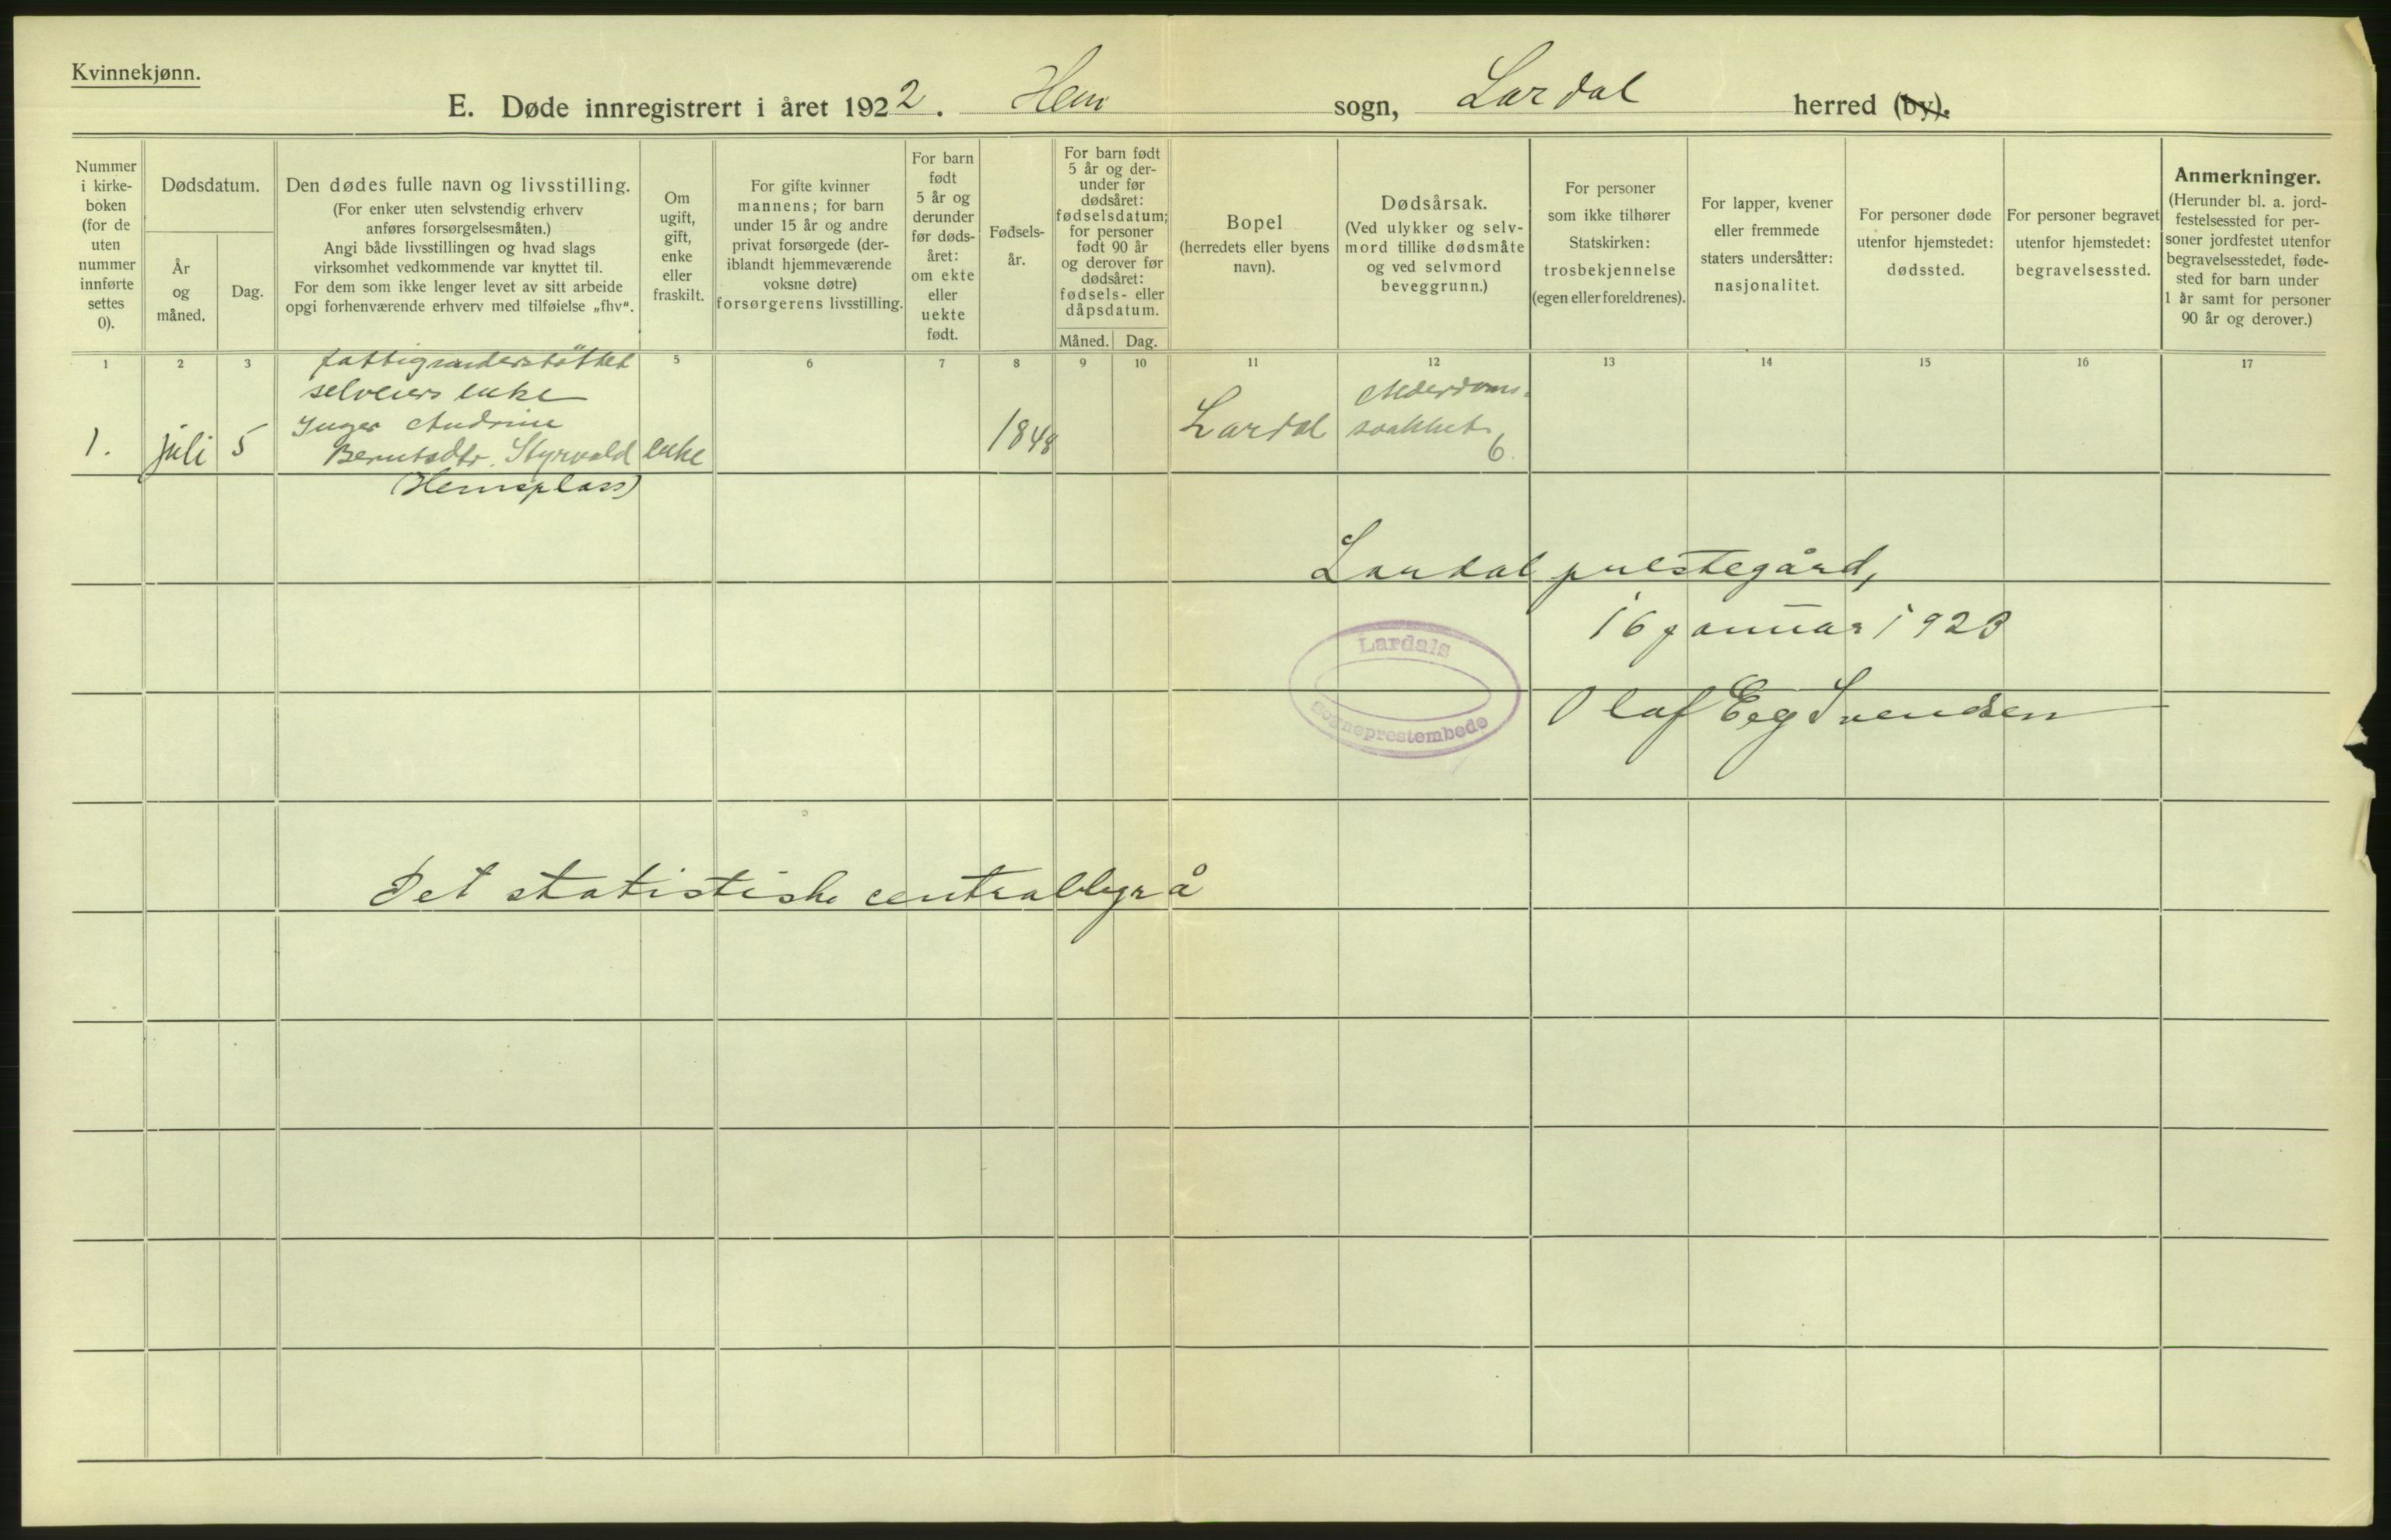 Kvinnekjønn.
E. Døde innregistrert i året 1922. Hem sogn, Lardal herred (by).
Nummer
i kirke-
boken
(for de
uten
nummer
innførte
settes
0).
Dødsdatum.
År
og
måned.
Dag.
Den dødes fulle navn og livsstilling.
(For enker uten selvstendig erhverv
anføres forsørgelsesmåten.)
Angi både livsstillingen og hvad slags
virksomhet vedkommende var knyttet til.
For dem som ikke lenger levet av sitt arbeide
opgi forhenværende erhverv med tilføielse „fhv“.
Om
ugift,
gift,
enke
eller
fraskilt.
For gifte kvinner
mannens; for barn
under 15 år og andre
privat forsørgede (der-
iblandt hjemmeværende
voksne døtre)
forsørgerens livsstilling.
For barn
født
5 år og
derunder
før døds-
året:
om ekte
eller
uekte
født.
Fødsels-
år.
For barn født
5 år og der-
under før
dødsåret:
fødselsdatum;
for personer
født 90 år
og derover før
dødsåret:
fødsels- eller
dåpsdatum.
Måned. Dag.
Bopel
(herredets eller byens
navn).
Dødsårsak.
(Ved ulykker og selv-
mord tillike dødsmåte
og ved selvmord
beveggrunn.)
For personer
som ikke tilhører
Statskirken:
trosbekjennelse
(egen eller foreldrenes).
For lapper, kvener
eller fremmede
staters undersåtter:
nasjonalitet.
For personer døde
utenfor hjemstedet:
dødssted.
For personer begravet
utenfor hjemstedet:
begravelsessted.
Anmerkninger.
(Herunder bl. a. jord-
festelsessted for per-
soner jordfestet utenfor
begravelsesstedet, føde-
sted for barn under
1 år samt for personer
90 år og derover.)
1 2 3 5 6 7 8 9 10 11 12 13 14 15 16 17
fattigunderstöttet
selveiers enke
Inger Andrine
1. juli 5 Berntsdtr. Styrvold enke 1848 Lardal Alderdoms-
svakhet
6
(Hemsplass)
Lardal prestegård,
16 januar 1923
Lardals
Sogneprestembede
Olaf Eeg Svendsen
Det statistiske centralbyrå